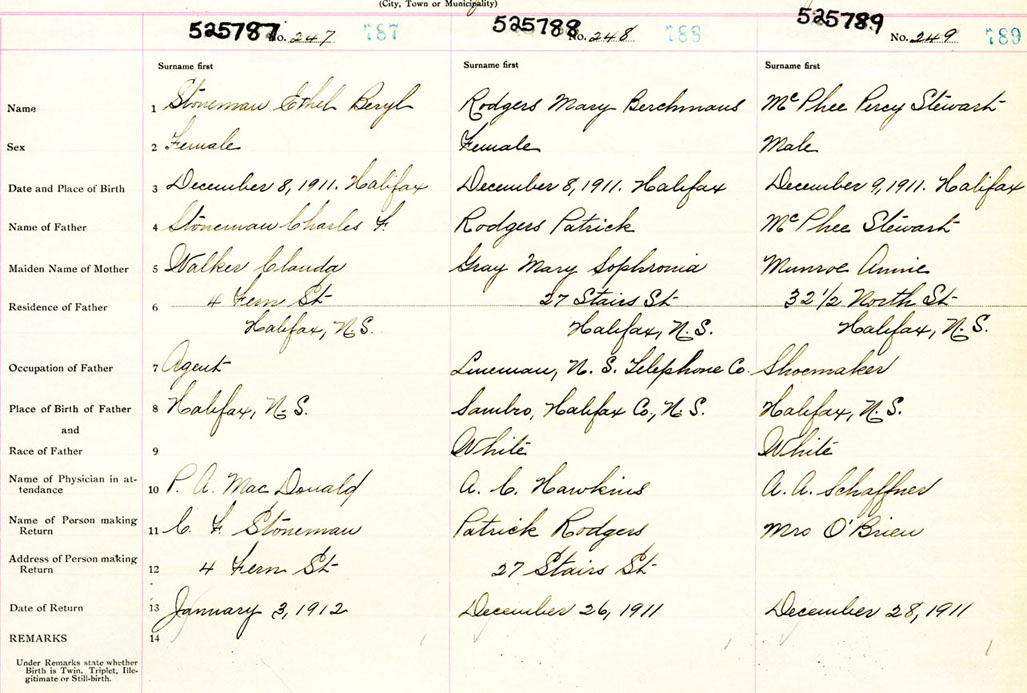 (City, Town or Municipality)
525787 No. 247 787 525788 No. 248 788 525789 No. 249 789
Surname first Surname first Surname first
Name 1 Stoneman Ethel Beryl Rodgers Mary Berchmans McPhee Percy Stewart
Sex 2 Female Female Male
Date and Place of Birth 3 December 8, 1911. Halifax December 8, 1911. Halifax December 9, 1911. Halifax
Name of Father 4 Stoneman Charles F. Rodgers Patrick McPhee Stewart
Maiden Name of Mother 5 Walker Clauda Gray Mary Sophronia Munroe Annie
Residence of Father 6 4 Fern St 27 Stairs St 32 1/2 North St
Halifax, N.S. Halifax, N.S. Halifax, N.S.
Occupation of Father 7 Agent Lineman, N. S. Telephone Co. Shoemaker
Place of Birth of Father 8 Halifax, N.S. Sambro, Halifax Co., N.S. Halifax, N.S.
and
Race of Father 9 White White
Name of Physician in at-
tendance 10 P. A. MacDonald A. C. Hawkins A. A. Schaffner
Name of Person making
Return 11 C. F. Stoneman Patrick Rodgers Mrs O'Brien
Address of Person making
Return 12 4 Fern St 27 Stairs St
Date of Return 13 January 3, 1912 December 26, 1911 December 28, 1911
REMARKS 14
Under Remarks state whether
Birth is Twin, Triplet, Ille-
gitimate or Still-birth.